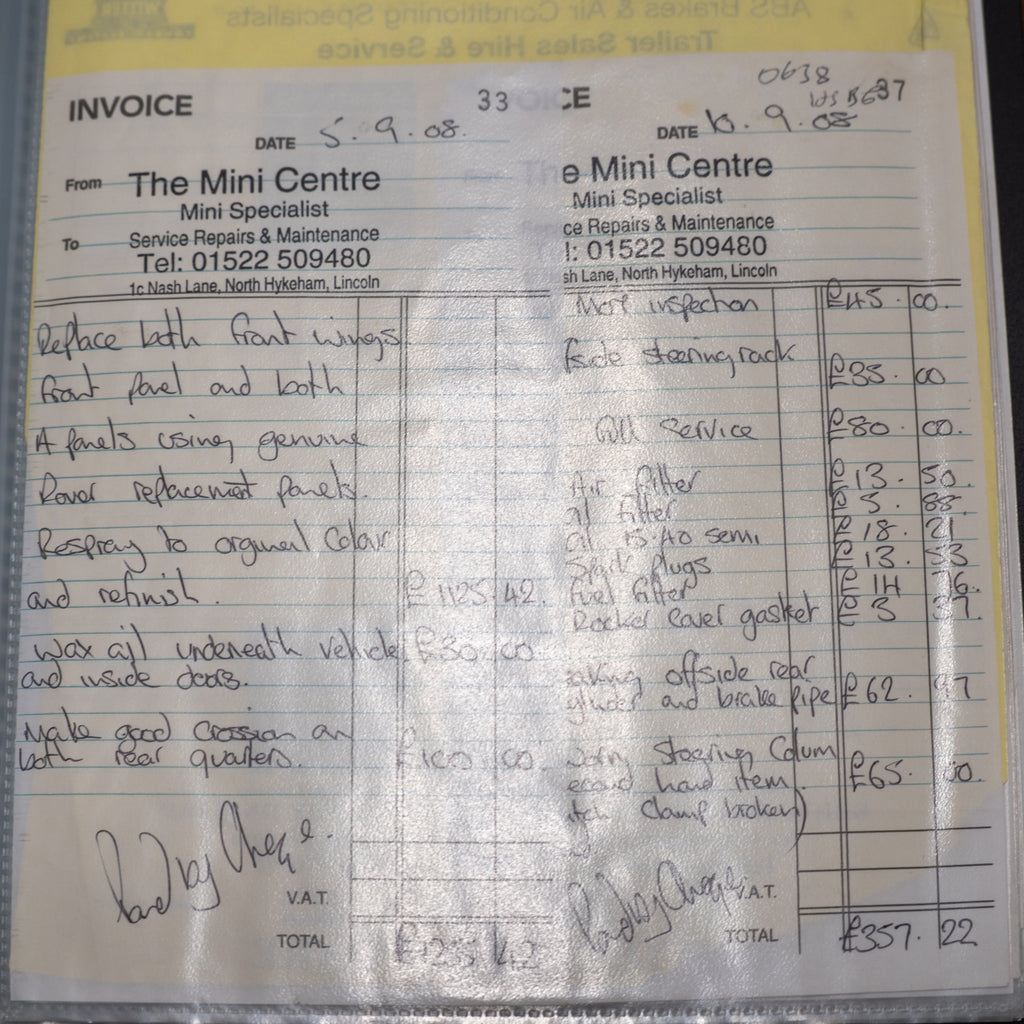 ABS Brakes & Air Conditioning Specialists
Trailer Sales Hire & Service
INVOICE
33
DATE 5.9.08.
From The Mini Centre
Mini Specialist
To Service Repairs & Maintenance
Tel: 01522 509480
1c Nash Lane, North Hykeham, Lincoln
Replace both front wings
front panel and both
A panels using genuine
Rover replacement panels.
Respray to orgional Colour
and refinish. £1125.42.
Wax oil underneath vehicle £30.00
and inside doors.
Make good Corrosion on
both rear quarters. £100.00.
Paid by Cheque.
V.A.T.
TOTAL £1255.42
CE
0638
637
DATE 10.9.08
e Mini Centre
Mini Specialist
ce Repairs & Maintenance
l: 01522 509480
sh Lane, North Hykeham, Lincoln
Mot inspection £45.00.
fside steering rack
£35.00
Full Service £80.00.
Air filter £13.50.
oil filter £5.88.
oil 15-40 semi, £18.21
Spark Plugs £13.53
fuel filter £14.76.
Rocker Cover gasket £3
eaking offside rear
ylinder and brake pipe £62.97
Worn Steering Colum
econd hand item. £65.00.
clamp broken)
Paid by Cheque
V.A.T.
TOTAL £357.22